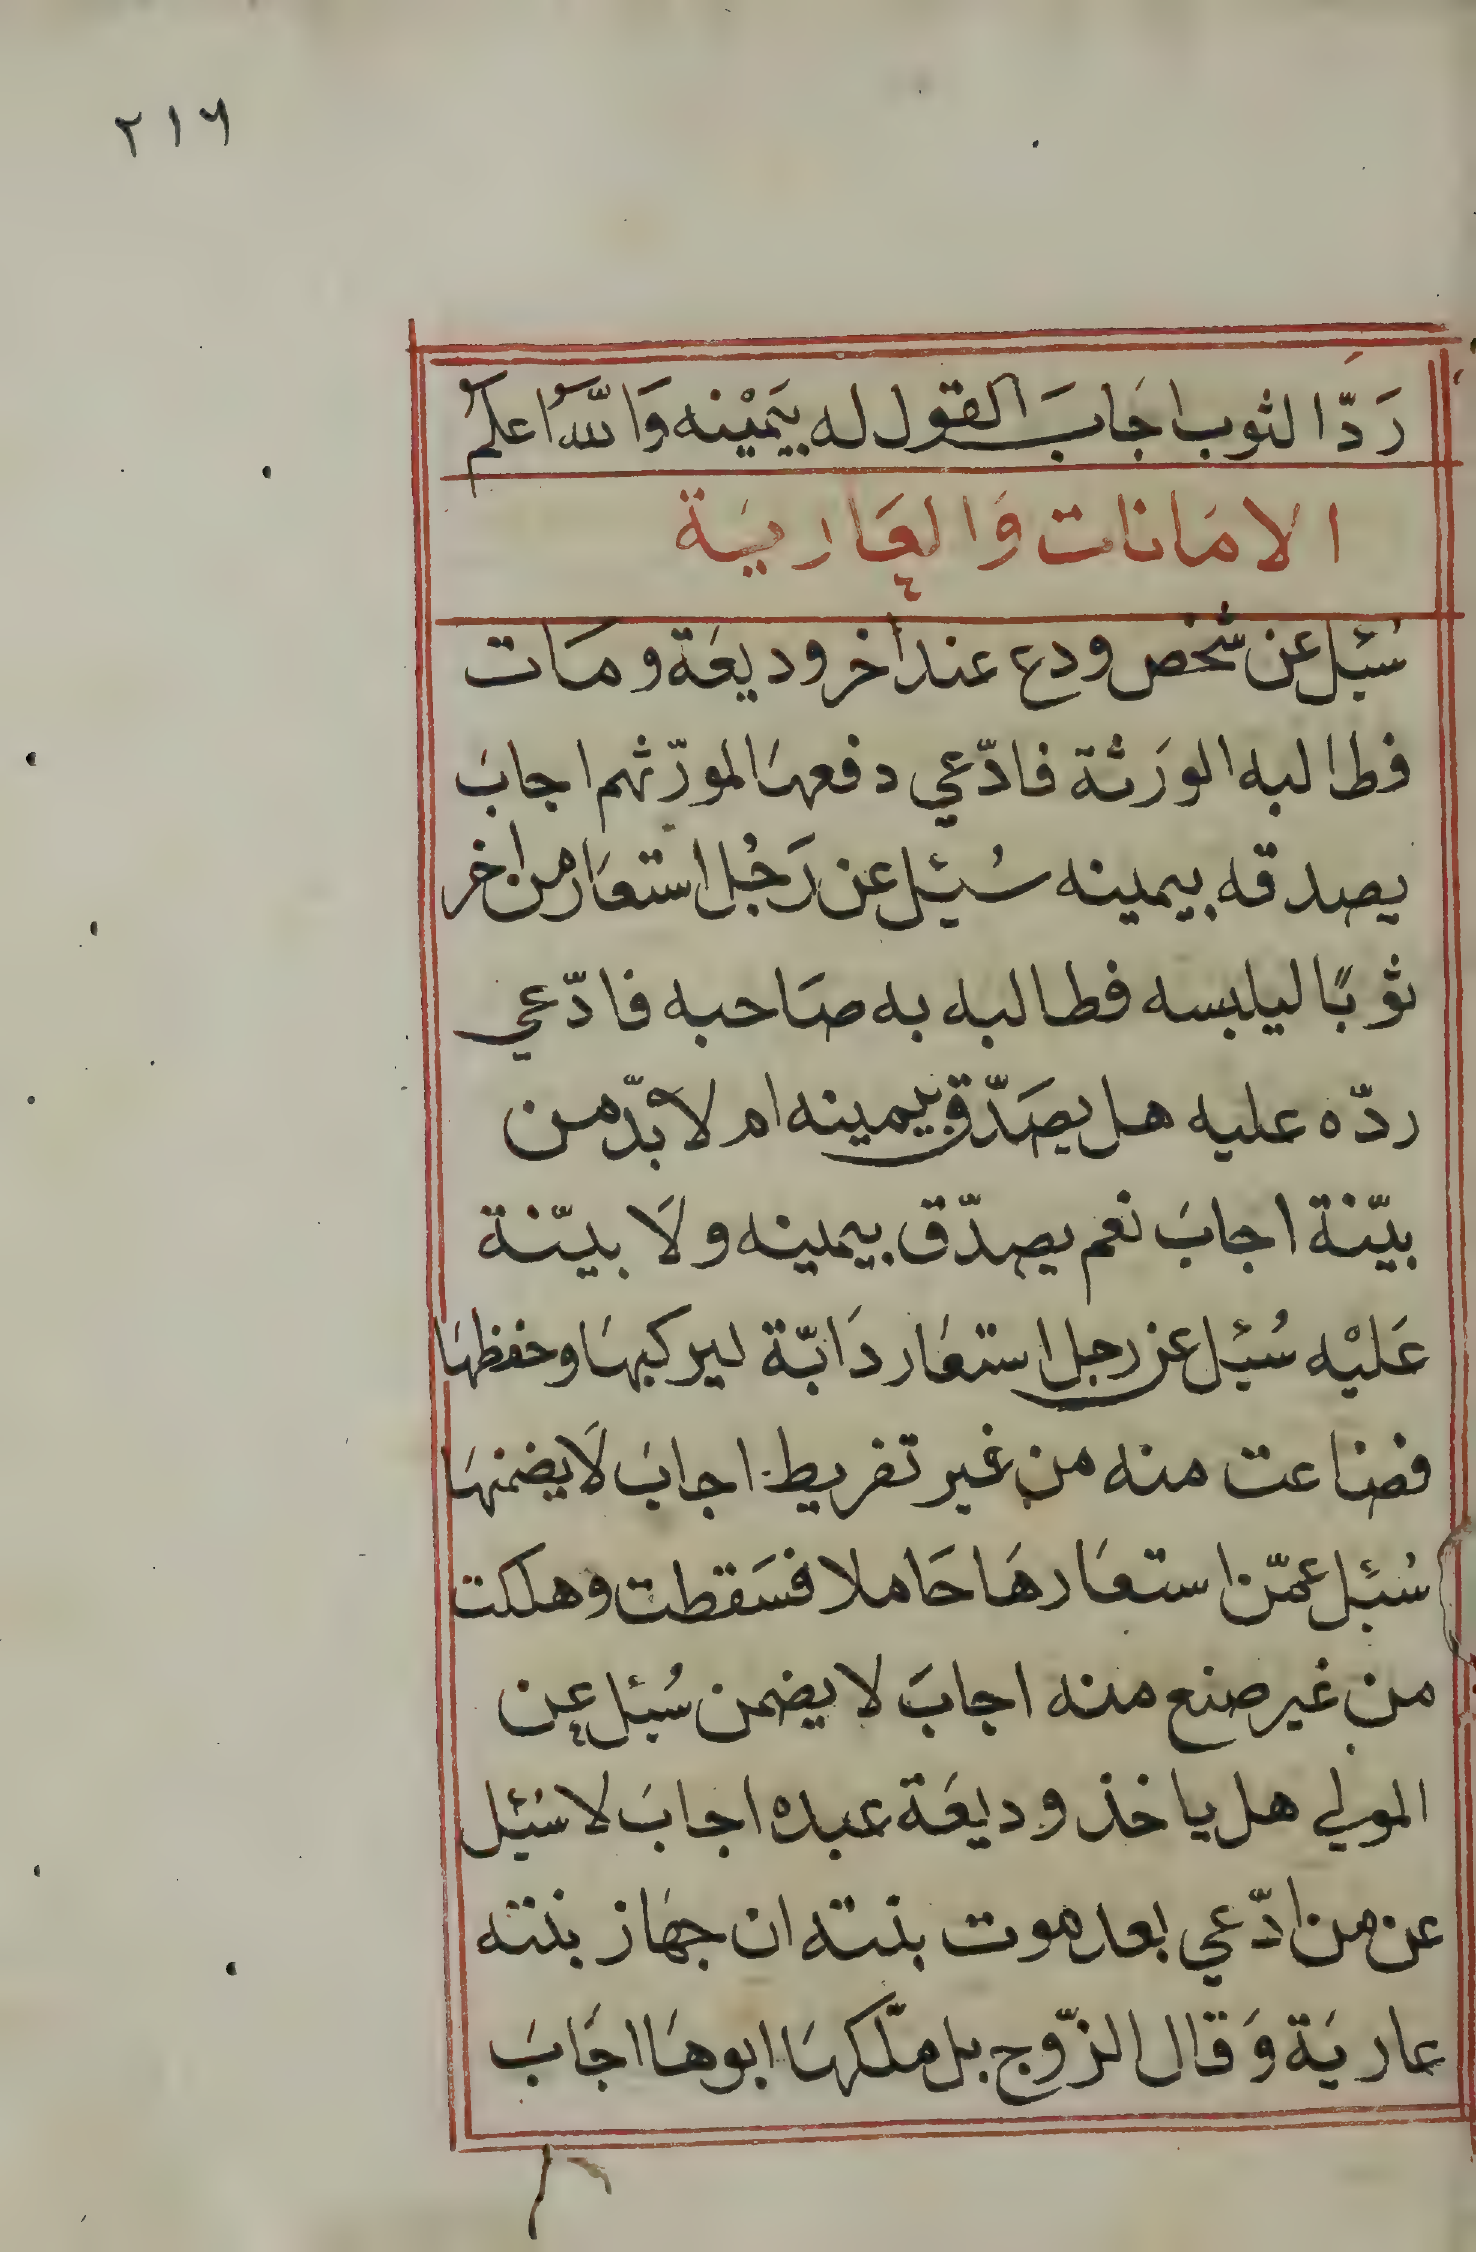 ٢١٦
رَدّ الثوب اجَابَ القول له بيَمْينه وَاللّٰهُ اعلمُ
الامَانات وَالعَاريَة
سُئِل عن شخص ودع عند اخر وديعَة ومَات
فطالبه الورَثة فادّعي دفعهَا لمورّثهم اجابَ
يصدقه بيمينه سُئِل عن رَجُل استعَار من اخر
ثوبًا ليلبسه فطالبه به صَاحبه فادّعي
ردّه عليه هل يصَدّق بيمينه ام لا بدّ من
بيّنة اجابَ نعم يصدّق بيمينه ولَا بيّنة
عَليْه سُئِل عن رجل استعَار دَابّة ليركبهَا وحفظهَا
فضاعت منه من غير تفريط اجابَ لَا يضمنهَا
سُئِل عمّن استعَارهَا حَاملا فسَقطت وهلكت
من غير صنع منه اجابَ لا يضمن سُئِل عن
المولي هل ياخذ وديعَة عبده اجابَ لا سُئِل
عن من ادّعي بعد موت بنته ان جهَاز بنته
عاريَة وَقال الزّوج بل ملّكهَا ابوهَا اجَابَ